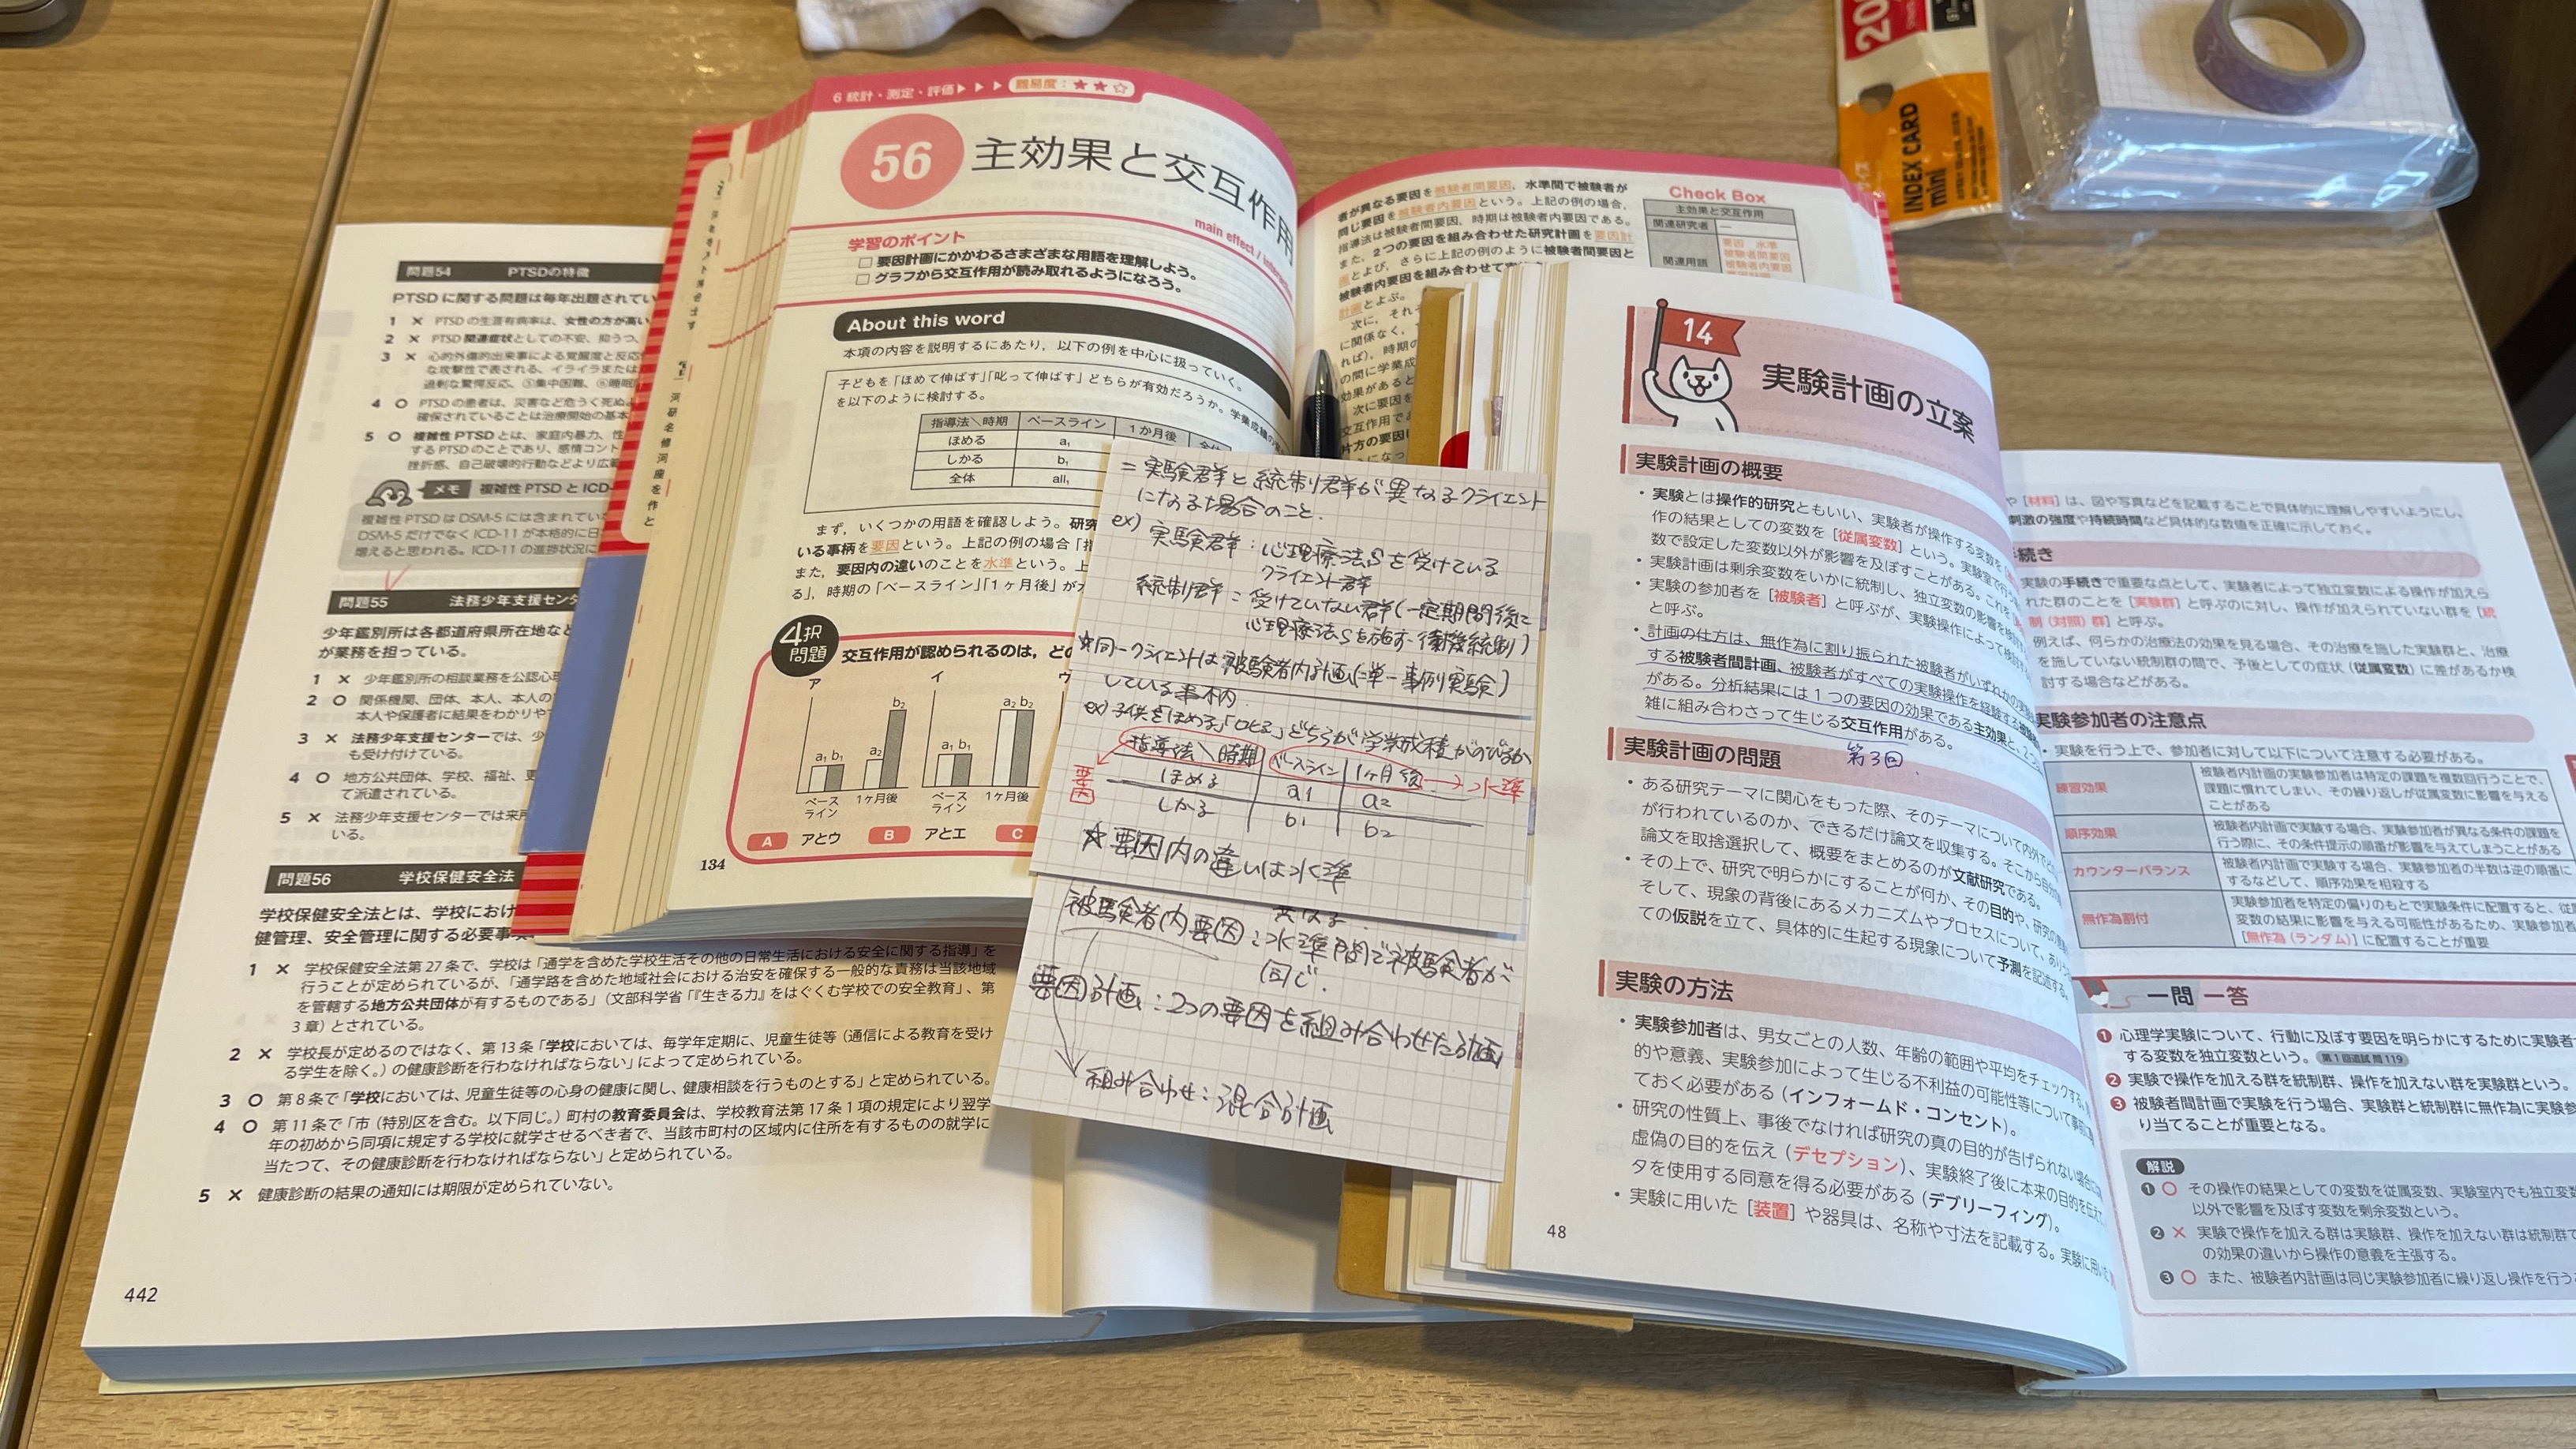 問題54 PTSDの特徴
PTSDに関する問題は毎年出題されてい
1 × PTSDの生涯有病率は、女性の方が高い
2 × PTSD関連症状としての不安、抑うつ、
3 × 心的外傷的出来事による覚醒度と反応
な攻撃性で表される、イライラまたは
過剰な驚愕反応、⑤集中困難、⑥睡眠
4 ○ PTSDの患者は、災害など危うく死ぬ
確保されていることは治療開始の基本
5 ○ 複雑性PTSDとは、家庭内暴力、性
するPTSDのことであり、感情コント
挫折感、自己破壊的行動などより広範
メモ 複雑性PTSDとICD-
複雑性PTSDはDSM-5には含まれてい
DSM-5だけでなくICD-11が本格的に日
増えると思われる。ICD-11の進捗状況に
問題55 法務少年支援セン
少年鑑別所は各都道府県所在地な
が業務を担っている。
1 × 少年鑑別所の相談業務を公認心
2 ○ 関係機関、団体、本人、本人の
本人や保護者に結果をわかりや
3 × 法務少年支援センターでは、少
も受け付けている。
4 ○ 地方公共団体、学校、福祉、更
て派遣されている。
5 × 法務少年支援センターでは来所
いる。
問題56 学校保健安全法
学校保健安全法とは、学校におけ
健管理、安全管理に関する必要事
1 × 学校保健安全法第27条で、学校は「通学を含めた学校生活その他の日常生活における安全に関する指導」を
行うことが定められているが、「通学路を含めた地域社会における治安を確保する一般的な責務は当該地域
を管轄する地方公共団体が有するものである」(文部科学省「『生きる力』をはぐくむ学校での安全教育」、第
3章)とされている。
2 × 学校長が定めるのではなく、第13条「学校においては、毎学年定期に、児童生徒等(通信による教育を受け
る学生を除く。)の健康診断を行わなければならない」によって定められている。
3 ○ 第8条で「学校においては、児童生徒等の心身の健康に関し、健康相談を行うものとする」と定められている。
4 ○ 第11条で「市(特別区を含む。以下同じ。)町村の教育委員会は、学校教育法第17条1項の規定により翌学
年の初めから同項に規定する学校に就学させるべき者で、当該市町村の区域内に住所を有するものの就学に
当たつて、その健康診断を行わなければならない」と定められている。
5 × 健康診断の結果の通知には期限が定められていない。
442
6 統計・測定・評価▶▶▶ 難易度:★★☆
56 主効果と交互作用
main effect /
学習のポイント
□ 要因計画にかかわるさまざまな用語を理解しよう。
□ グラフから交互作用が読み取れるようになろう。
About this word
本項の内容を説明するにあたり、以下の例を中心に扱っていく。
子どもを「ほめて伸ばす」「叱って伸ばす」どちらが有効だろうか。学業成績の
を以下のように検討する。
指導法\時期 ベースライン 1か月後
ほめる a₁
しかる b₁
全体 all₁
まず、いくつかの用語を確認しよう。研究
いる事柄を要因という。上記の例の場合「指
また、要因内の違いのことを水準という。上
る」、時期の「ベースライン」「1ヶ月後」が
4択問題 交互作用が認められるのは、ど
ア イ
a₁ b₁ a₂ b₂ a₁ b₁ a₂ b₂
ベースライン 1ヶ月後 ベースライン 1ヶ月後
A アとウ B アとエ C
134
者が異なる要因を被験者間要因、水準間で被験者が
同じ要因を被験者内要因という。上記の例の場合、
指導法は被験者間要因、時期は被験者内要因である。
また、2つの要因を組み合わせた研究計画を要因計
画とよび、さらに上記の例のように被験者間要因と
被験者内要因を組み合わせて
計画とよぶ。
次に、それ
に関係なく、
れば)、時期の
の間に学業成
効果があると
次に要因を
交互作用で
片方の要因
Check Box
主効果と交互作用
関連研究者 ―
関連用語 要因 水準
被験者間要因
被験者内要因
=実験群と統制群が異なるクライエント
になる場合のこと.
ex) 実験群:心理療法Sを受けている
クライエント群
統制群=受けていない群(一定期間後に
心理療法Sを施す-待機統制)
☆同一クライエントは被験者内計画(=単一事例実験)
している事柄
ex) 子供を「ほめる」「叱る」どちらが学業成績がのびるか
指導法\時期 ベースライン 1ヶ月後 → 水準
要因
ほめる a1 a2
しかる b1 b2
☆要因内の違いは水準
被験者内要因:水準間で被験者が
同じ.
要因計画:2つの要因を組み合わせた計画
組み合わせ:混合計画
14 実験計画の立案
実験計画の概要
・実験とは操作的研究ともいい、実験者が操作する変数を
作の結果としての変数を[従属変数]という。実験室で行う
数で設定した変数以外が影響を及ぼすことがある。これを
・実験計画は剰余変数をいかに統制し、独立変数の影響を検討
・実験の参加者を[被験者]と呼ぶが、実験操作によって
と呼ぶ。
・計画の仕方は、無作為に割り振られた被験者がいずれかの実験
する被験者間計画、被験者がすべての実験操作を経験する被験
がある。分析結果には1つの要因の効果である主効果と、2つ
雑に組み合わさって生じる交互作用がある。
第3回
実験計画の問題
・ある研究テーマに関心をもった際、そのテーマについて国内外で
が行われているのか、できるだけ論文を収集する。そこから自分の
論文を取捨選択して、概要をまとめるのが文献研究である。
・その上で、研究で明らかにすることが何か、その目的や、研究の
そして、現象の背後にあるメカニズムやプロセスについて、あり
ての仮説を立て、具体的に生起する現象について予測を記述する。
実験の方法
・実験参加者は、男女ごとの人数、年齢の範囲や平均をチェックする。
的や意義、実験参加によって生じる不利益の可能性等について事前に
ておく必要がある(インフォームド・コンセント)。
・研究の性質上、事後でなければ研究の真の目的が告げられない場合
虚偽の目的を伝え(デセプション)、実験終了後に本来の目的を伝え
タを使用する同意を得る必要がある(デブリーフィング)。
・実験に用いた[装置]や器具は、名称や寸法を記載する。実験に用い
48
や[材料]は、図や写真などを記載することで具体的に理解しやすいようにし、
刺激の強度や持続時間など具体的な数値を正確に示しておく。
続き
実験の手続きで重要な点として、実験者によって独立変数による操作が加えら
れた群のことを[実験群]と呼ぶのに対し、操作が加えられていない群を[統
制(対照)群]と呼ぶ。
例えば、何らかの治療法の効果を見る場合、その治療を施した実験群と、治療
を施していない統制群の間で、予後としての症状(従属変数)に差があるか検
討する場合などがある。
実験参加者の注意点
・実験を行う上で、参加者に対して以下について注意する必要がある。
練習効果 被験者内計画の実験参加者は特定の課題を複数回行うことで、
課題に慣れてしまい、その繰り返しが従属変数に影響を与える
ことがある
順序効果 被験者内計画で実験する場合、実験参加者が異なる条件の課題を
行う際に、その条件提示の順番が影響を与えてしまうことがある
カウンターバランス 被験者内計画で実験する場合、実験参加者の半数は逆の順番に
するなどして、順序効果を相殺する
無作為割付 実験参加者を特定の偏りのもとで実験条件に配置すると、従属
変数の結果に影響を与える可能性があるため、実験参加者
[無作為(ランダム)]に配置することが重要
一問一答
❶ 心理学実験について、行動に及ぼす要因を明らかにするために実験者
する変数を独立変数という。 第1回追試 問119
❷ 実験で操作を加える群を統制群、操作を加えない群を実験群という。
❸ 被験者間計画で実験を行う場合、実験群と統制群に無作為に実験参
り当てることが重要となる。
解説
❶ ○ その操作の結果としての変数を従属変数、実験室内でも独立変数
以外で影響を及ぼす変数を剰余変数という。
❷ × 実験で操作を加える群は実験群、操作を加えない群は統制群で
の効果の違いから操作の意義を主張する。
❸ ○ また、被験者内計画は同じ実験参加者に繰り返し操作を行う
INDEX CARD
mini